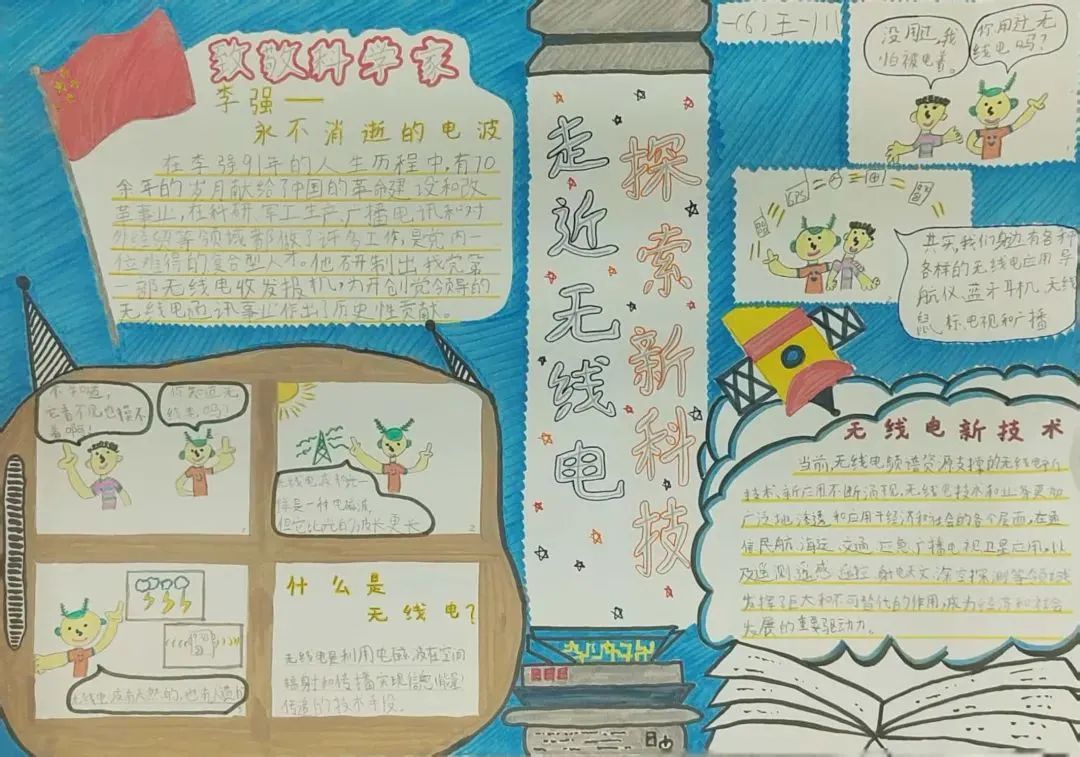 致敬科学家
李强——
永不消逝的电波
在李强91年的人生历程中,有70
余年的岁月献给了中国的革命建设和改
革事业,在科研、军工生产、广播电讯和对
外经贸等领域都做了许多工作,是党内一
位难得的复合型人才。他研制出我党第一
部无线电收发报机,为开创党领导的
无线电通讯事业作出了历史性贡献。
不知道,
它看不见也摸不
着啊!
你知道无
线电吗?
无线电波和光一
样是一种电磁波,
但它比光的波长更长
无线电波有天然的,也有人造的
什么是
无线电?
无线电是利用电磁波在空间
辐射和传播实现信息能量
传递的技术手段。
走近无线电
探索新科技
一(6)王一
没用过,我
怕被电着。
你用过无
线电吗?
GPS
其实,我们身边有各种
各样的无线电应用导
航仪、蓝牙耳机、无线
鼠标、电视和广播
无线电新技术
当前,无线电频谱资源支撑的无线电新
技术、新应用不断涌现,无线电技术和业务更加
广泛地渗透和应用于经济和社会的各个层面,在通
信、民航、海运、交通、应急、广播电视、卫星应用,以
及遥测、遥感、遥控、射电天文、深空探测等领域
发挥了巨大和不可替代的作用,成为经济和社会
发展的重要驱动力。